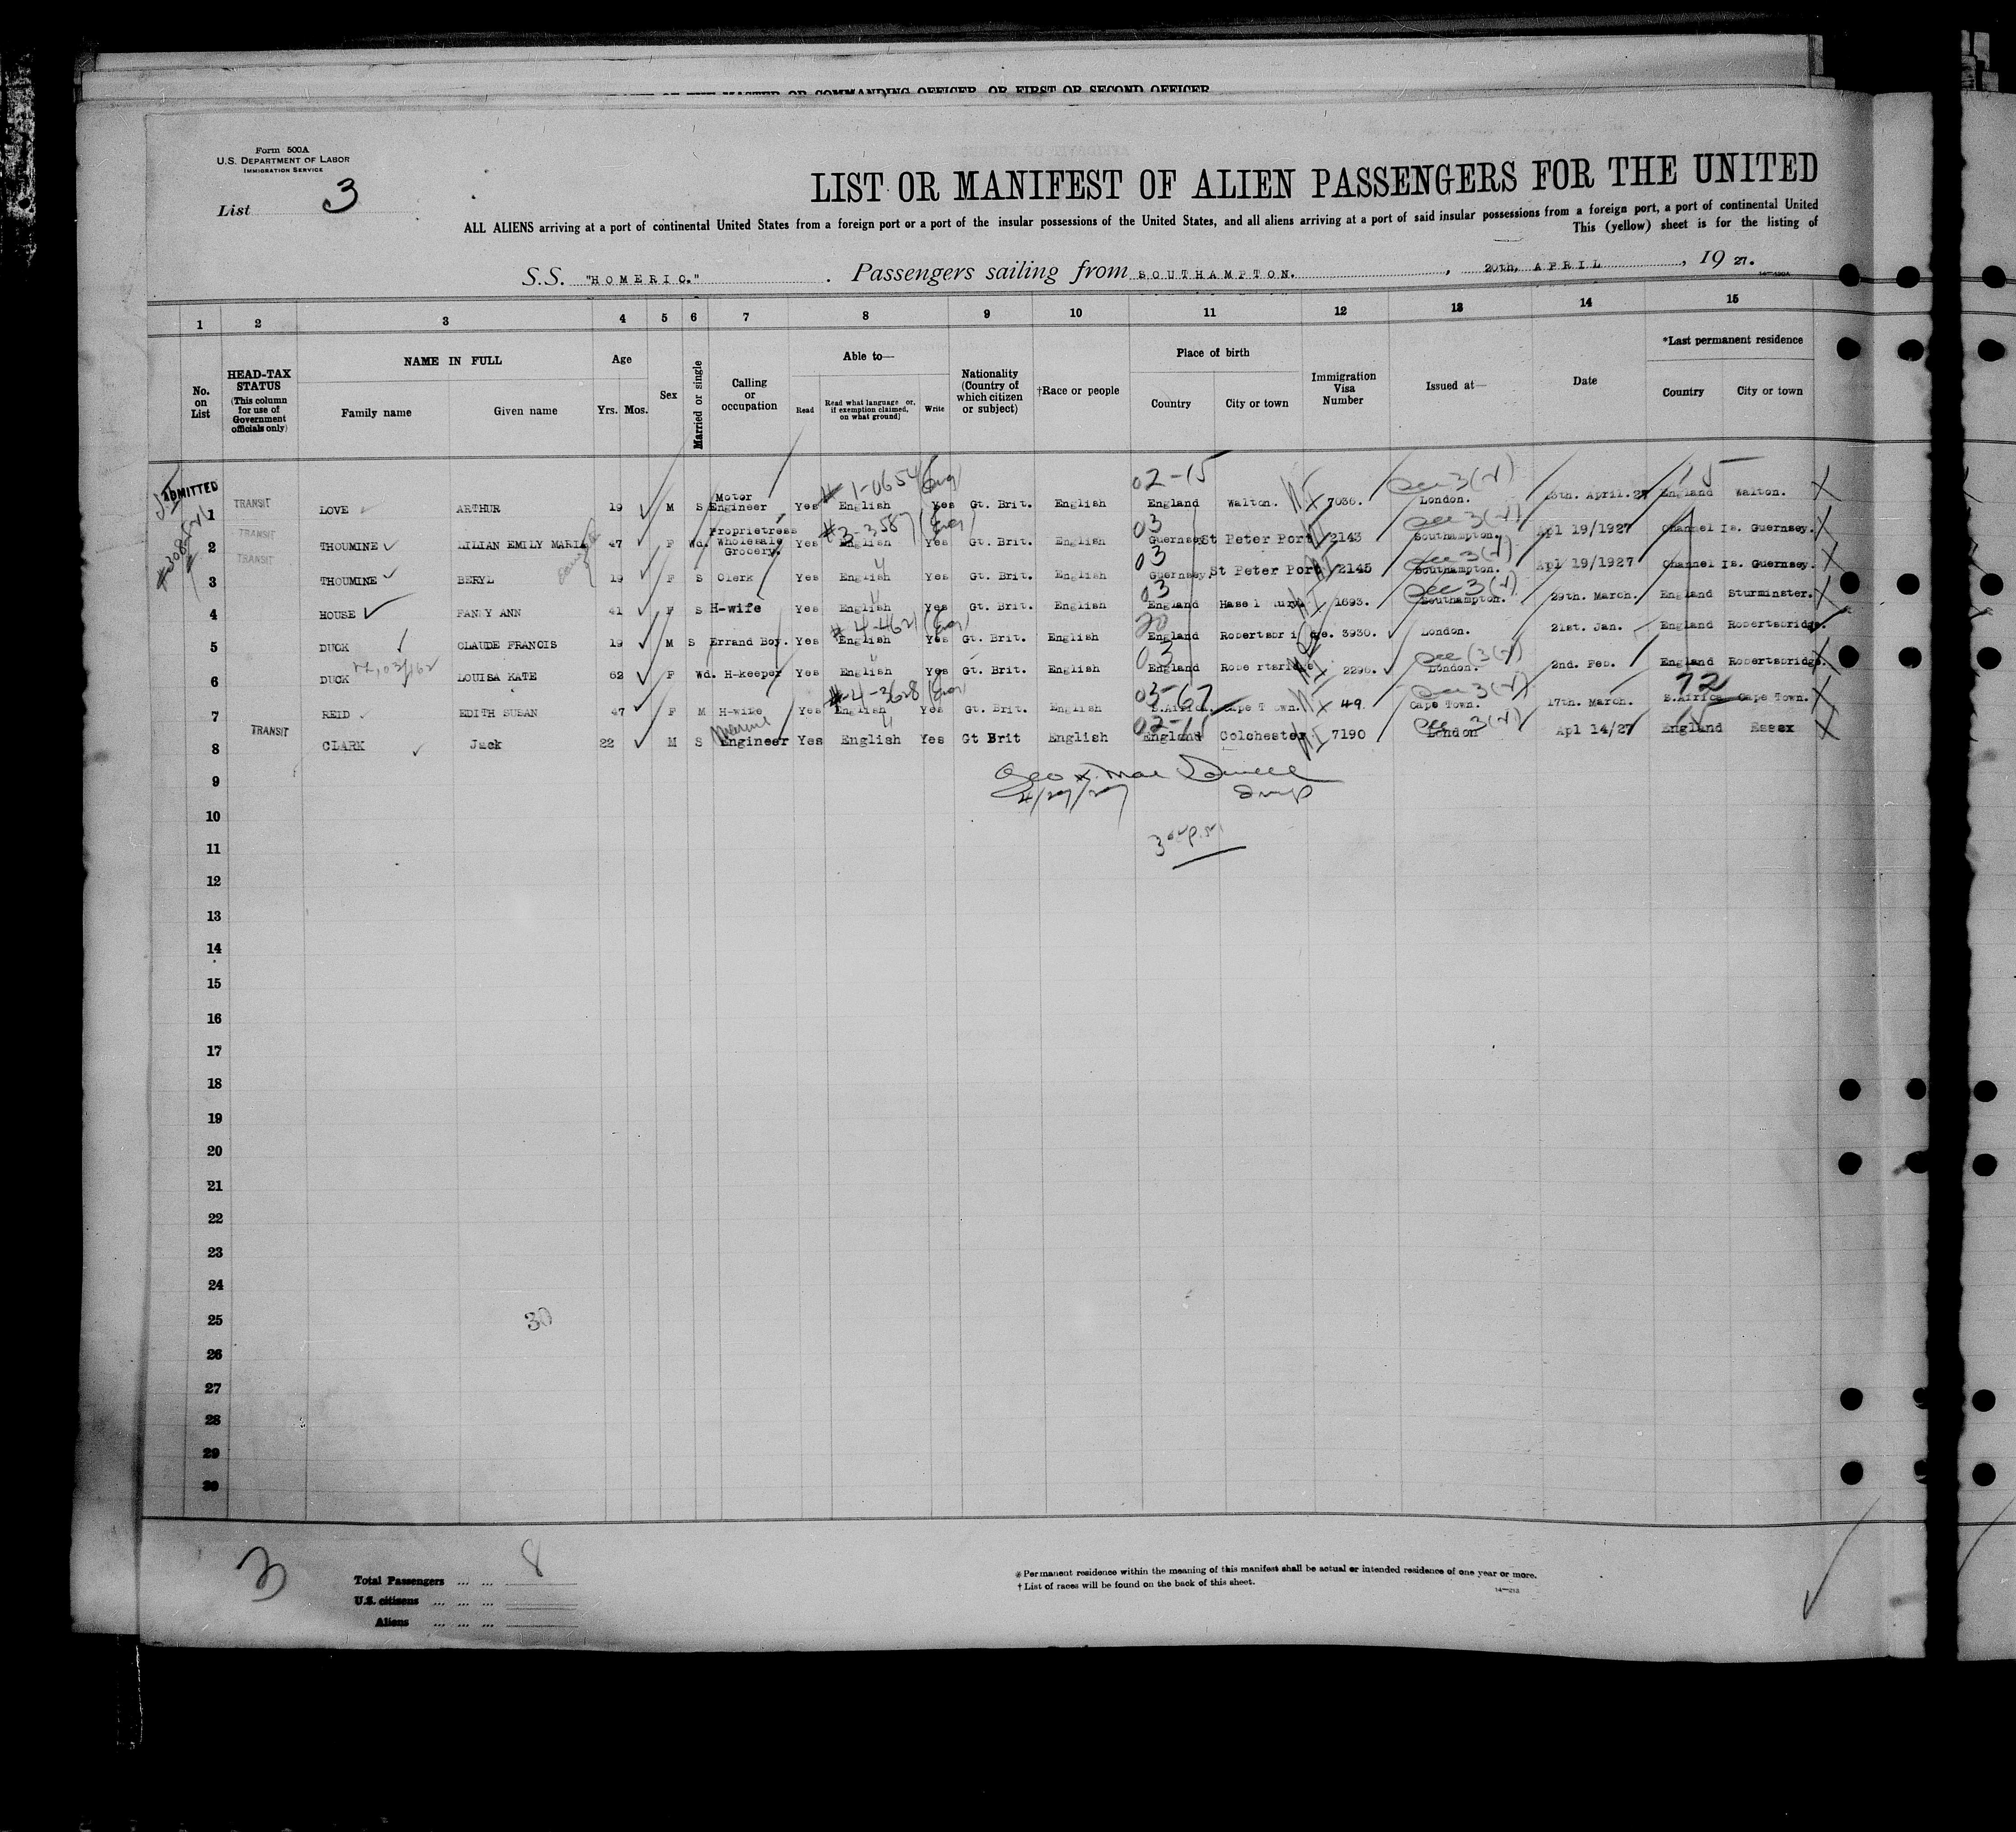 Form 500A
U.S. DEPARTMENT OF LABOR
IMMIGRATION SERVICE
List 3
LIST OR MANIFEST OF ALIEN PASSENGERS FOR THE UNITED
ALL ALIENS arriving at a port of continental United States from a foreign port or a port of the insular possessions of the United States, and all aliens arriving at a port of said insular possessions from a foreign port, a port of continental United
This (yellow) sheet is for the listing of
S.S. "HOMERIC." Passengers sailing from SOUTHAMPTON. , 20th, APRIL , 19 27.
1 2 3 4 5 6 7 8 9 10 11 12 13 14 15
No. on List
HEAD-TAX STATUS (This column for use of Government officials only)
NAME IN FULL
Family name Given name
Age
Yrs. Mos.
Sex
Married or single
Calling or occupation
Able to—
Read Read what language or, if exemption claimed, on what ground) Write
Nationality (Country of which citizen or subject)
†Race or people
Place of birth
Country City or town
Immigration Visa Number
Issued at—
Date
*Last permanent residence
Country City or town
ADMITTED
1 TRANSIT LOVE ARTHUR 19 M S Motor Engineer Yes English Yes Gt. Brit. English England Walton. 7036. London. April.27 England Walton.
2 TRANSIT THOUMINE LILIAN EMILY MARIE 47 F Wd. Proprietress Wholesale Grocery. Yes English Yes Gt. Brit. English Guernsey St Peter Port 2143 Southampton. Apl 19/1927 Channel Is. Guernsey.
3 TRANSIT THOUMINE BERYL 19 F S Clerk Yes English Yes Gt. Brit. English Guernsey. St Peter Port 2145 Southampton. Apl 19/1927 Channel Is. Guernsey.
4 HOUSE FANNY ANN 41 F S H-wife Yes English Yes Gt. Brit. English England 1693. Southampton. 29th. March. England Sturminster.
5 DUCK CLAUDE FRANCIS 19 M S Errand Boy. Yes English Yes Gt. Brit. English England 3930. London. 21st. Jan. England Robertsbridge.
6 DUCK LOUISA KATE 62 F Wd. H-keeper Yes English Yes Gt. Brit. English England Robertsbridge 2296. London. 2nd. Feb. England Robertsbridge.
7 REID EDITH SUSAN 47 F M H-wife Yes English Yes Gt. Brit. English S.Africa. Cape Town. 49. Cape Town. 17th. March. S.Africa Cape Town.
8 TRANSIT CLARK Jack 22 M S Engineer Yes English Yes Gt Brit English England Colchester 7190 London Apl 14/27 England Essex
9
4/27/27
10
11
12
13
14
15
16
17
18
19
20
21
22
23
24
25 30
26
27
28
29
30
3
Total Passengers ... ... 8
U.S. citizens ... ... ...
Aliens ... ... ...
* Permanent residence within the meaning of this manifest shall be actual or intended residence of one year or more.
† List of races will be found on the back of this sheet.